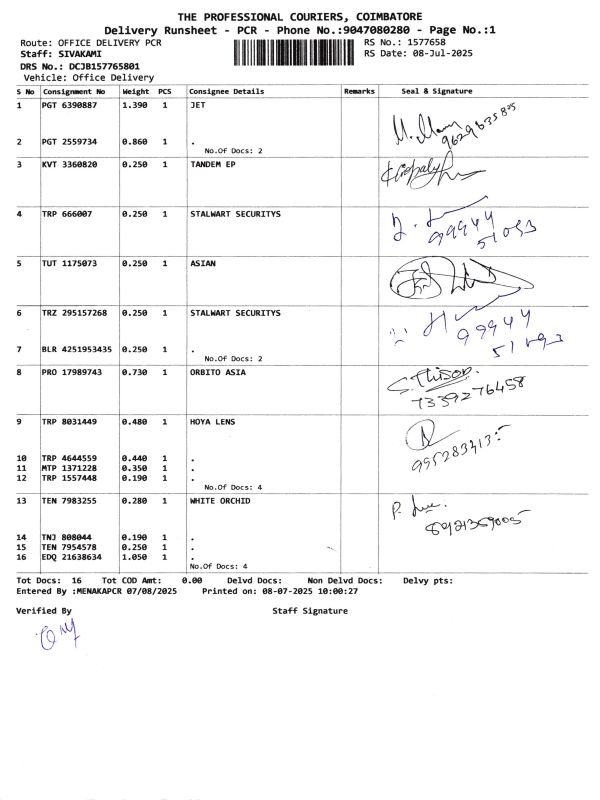 THE PROFESSIONAL COURIERS, COIMBATORE
Delivery Runsheet - PCR - Phone No.:9047080280 - Page No.:1
Route: OFFICE DELIVERY PCR RS No.: 1577658
Staff: SIVAKAMI RS Date: 08-Jul-2025
DRS No.: DCJB157765801
Vehicle: Office Delivery
S No Consignment No Weight PCS Consignee Details Remarks Seal & Signature
1 PGT 6390887 1.390 1 JET
9629635835
2 PGT 2559734 0.860 1 .
No.Of Docs: 2
3 KVT 3360820 0.250 1 TANDEM EP
4 TRP 666007 0.250 1 STALWART SECURITYS
99944
51093
5 TUT 1175073 0.250 1 ASIAN
6 TRZ 295157268 0.250 1 STALWART SECURITYS
99944
7 BLR 4251953435 0.250 1 .
No.Of Docs: 2
8 PRO 17989743 0.730 1 ORBITO ASIA
7339276458
9 TRP 8031449 0.480 1 HOYA LENS
10 TRP 4644559 0.440 1 .
11 MTP 1371228 0.350 1 .
12 TRP 1557448 0.190 1 .
No.Of Docs: 4
13 TEN 7983255 0.280 1 WHITE ORCHID
14 TNJ 808044 0.190 1 .
15 TEN 7954578 0.250 1 .
16 EDQ 21638634 1.050 1 .
No.Of Docs: 4
Tot Docs: 16 Tot COD Amt: 0.00 Delvd Docs: Non Delvd Docs: Delvy pts:
Entered By :MENAKAPCR 07/08/2025 Printed on: 08-07-2025 10:00:27
Verified By Staff Signature